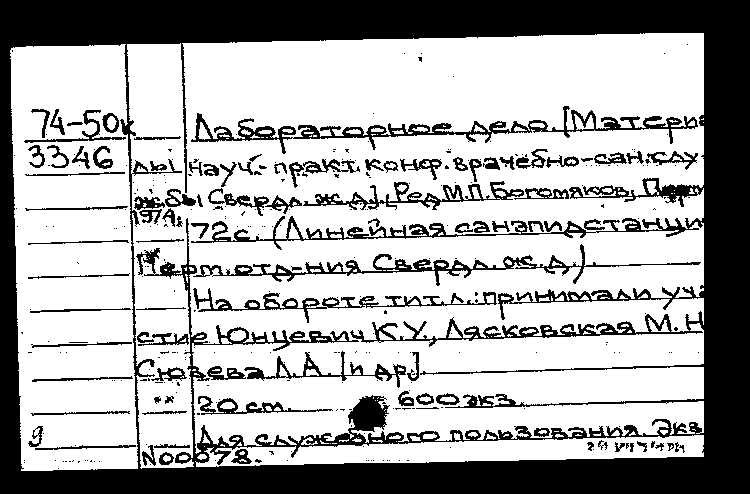 74-50к Лабораторное дело. [Материа
3346 лы науч.-практ. конф. врачебно-сан. слу-
жбы Свердл. ж.д.]. (Ред. М.П. Богомяков,
1974. 72с. (Линейная санэпидстанци
Перм. отд-ния Свердл. ж.д.).
На обороте тит.л.: принимали уча
стие Юнцевич К.У., Лясковская М.Н
Сюзева Л.А. [и др].
** 20 см. 600 экз.
9 Для служебного пользования. Экз
N00078.